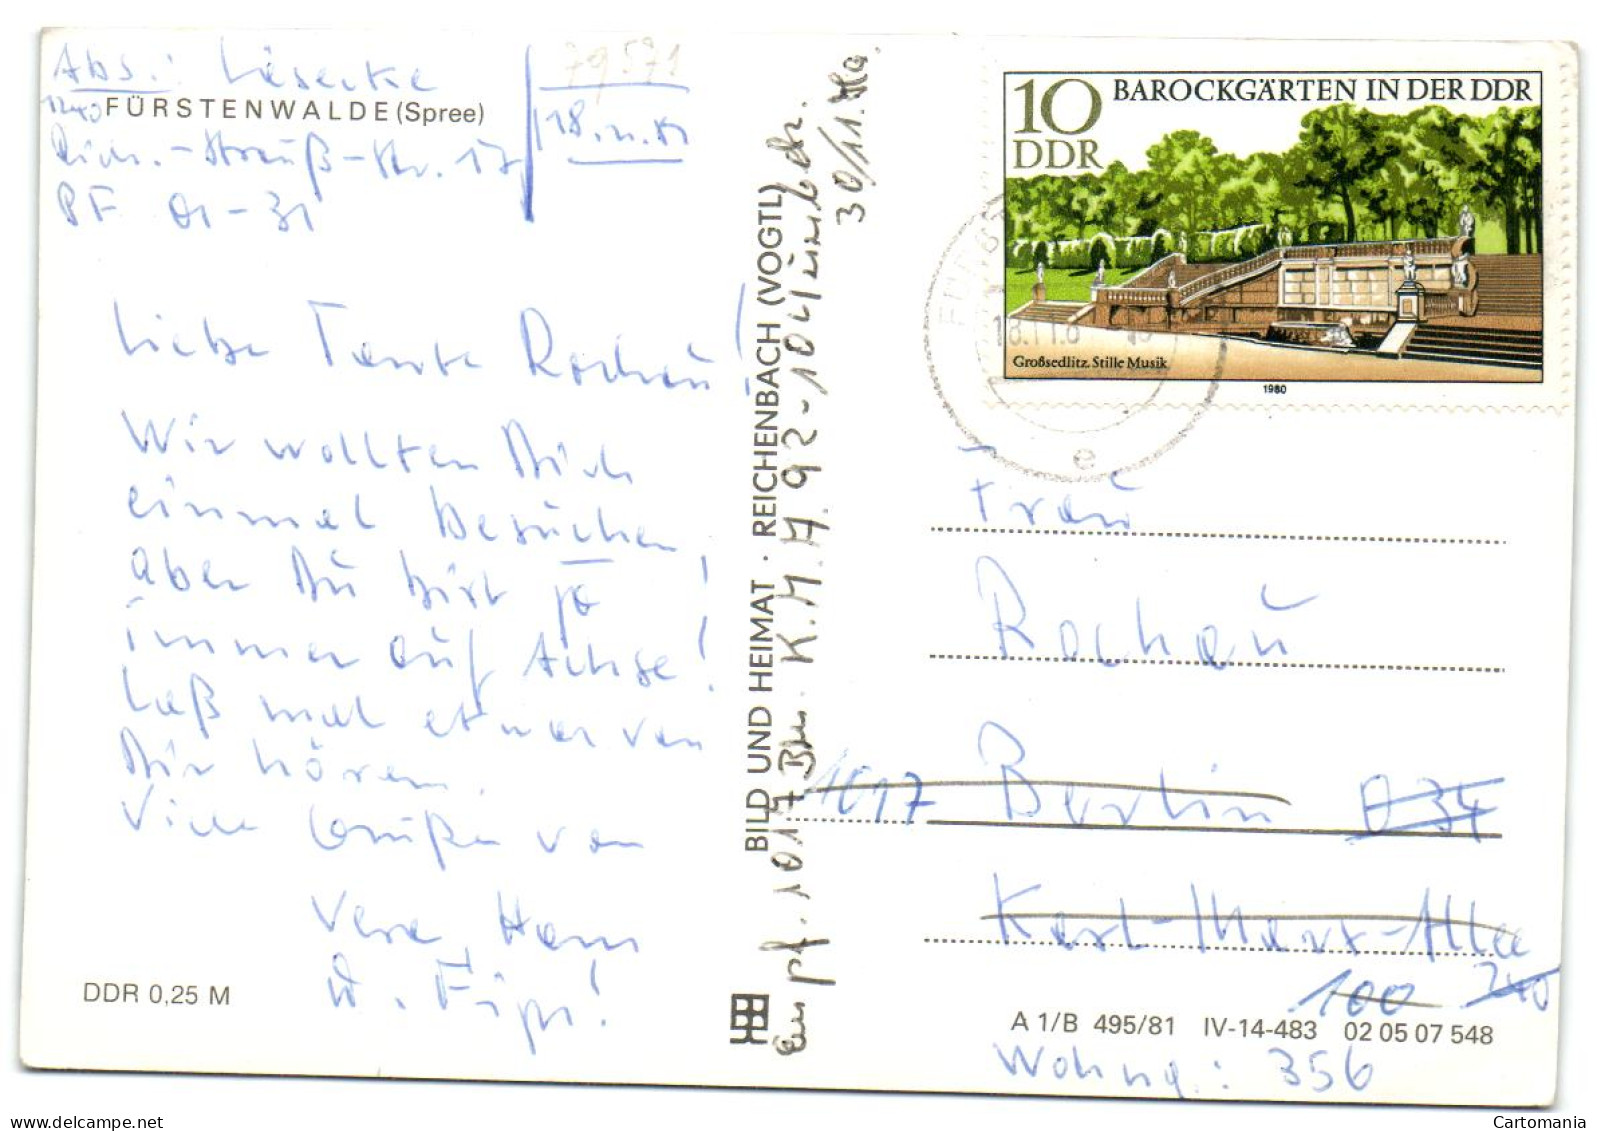 Abs.: Liesecke
1240 FÜRSTENWALDE (Spree)
Rich.-Strauß-Str. 17
PF 01-31
79571
18.11.81
Liebe Tante Rochau!
Wir wollten Dich
einmal besuchen,
aber Du bist ja
immer auf Achse!
Laß mal etwas von
Dir hören.
Viele Grüße von
Vera, Hans
u. Fips!
DDR 0,25 M
BILD UND HEIMAT · REICHENBACH (VOGTL)
Empf. 1017 Bln. K.M.A. 92-104
30/11.
10
DDR
BAROCKGÄRTEN IN DER DDR
Großsedlitz. Stille Musik
1980
18.11.8
e
Frau
Rochau
1017 Berlin O 34
Karl-Marx-Allee
100
A 1/B 495/81 IV-14-483 02 05 07 548
Wohng.: 356
Cartomania